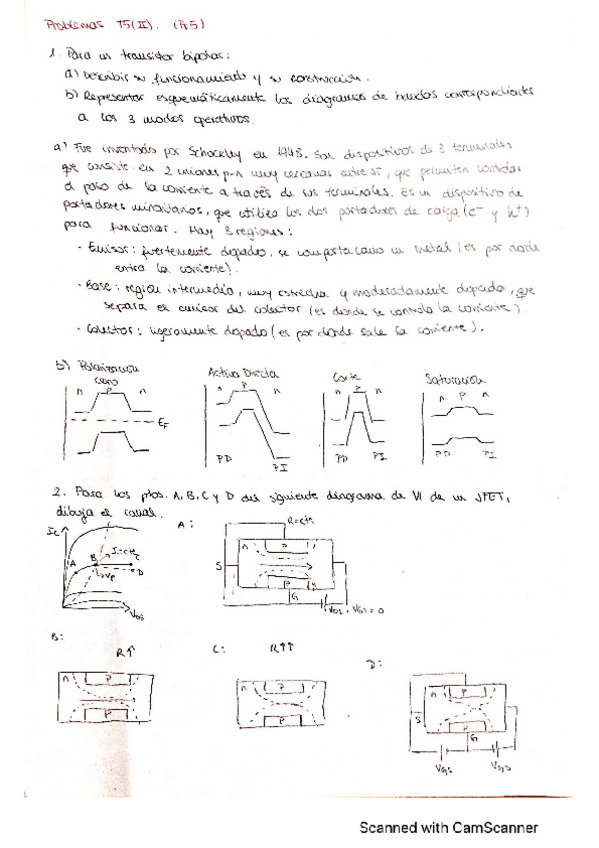 Problemas T5(II). (P.5)
1. Para un transistor bipolar:
a) Describir su funcionamiento y su construcción.
b) Representar esquemáticamente los diagramas de bandas correspondientes
a los 3 modos operativos.
a) Fue inventado por Schockley en 1948. Son dispositivos de 3 terminales
que consiste en 2 uniones p-n muy cercanas entre sí, que permiten controlar
el paso de la corriente a través de sus terminales. Es un dispositivo de
portadores minoritarios, que utiliza los dos portadores de carga (e- y h+)
para funcionar. Hay 3 regiones:
· Emisor: fuertemente dopado, se comporta como un metal (es por donde
entra la corriente).
· Base: región intermedia, muy estrecha y moderadamente dopada, que
separa el emisor del colector (es donde se controla la corriente)
· Colector: ligeramente dopado (es por donde sale la corriente).
b) Polarización
cero
n p n
EF
Activa Directa
n p n
PD PI
Corte
n p n
PD PI
Saturación
n p n
PD PI
2. Para los ptos. A, B, C y D del siguiente diagrama de VI de un JFET,
dibuja el canal.
A B D
VDS
A: R=cte
n P
S
P
G
VDS VGS = 0
B: R↑
n P
P
C: R↑↑
n P
P
D:
n P
S
P
G
VGS
Scanned with CamScanner